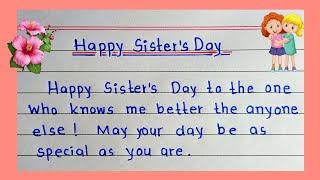 Happy Sister's Day
Happy Sister's Day to the one
who knows me better the anyone
else! May your day be as
special as you are.